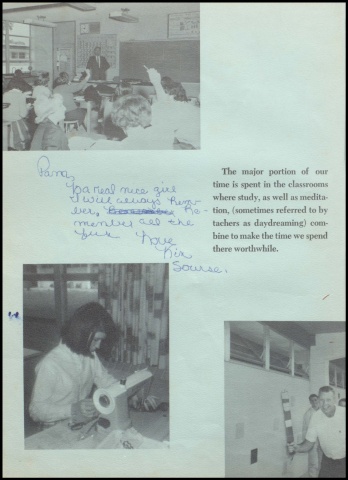 Pam,
To a real nice girl
I will always Rem-
ber, Re-
member all the
fun Love
Kix
Sourse.
The major portion of our
time is spent in the classrooms
where study, as well as medita-
tion, (sometimes referred to by
tachers as daydreaming) com-
bine to make the time we spend
there worthwhile.